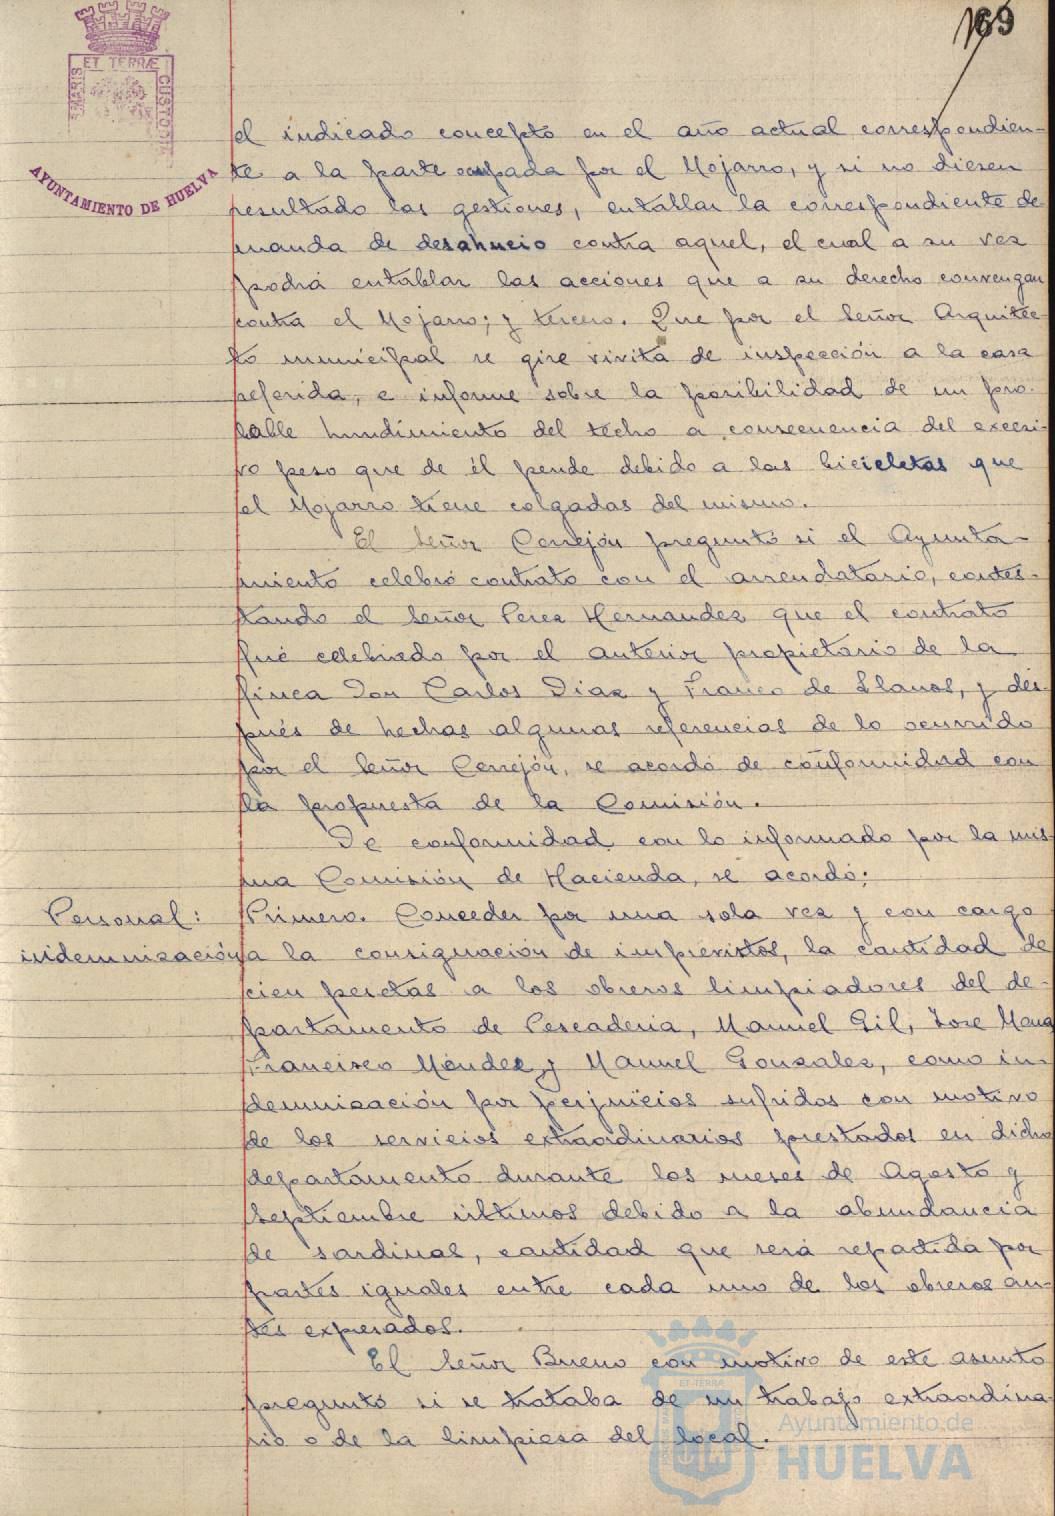 169
ET TERRÆ
MARIS
CUSTODIA
AYUNTAMIENTO DE HUELVA
el indicado concepto en el año actual correspondien-
te a la parte ocupada por el Mojarro, y si no diesen
resultado las gestiones, entablar la correspondiente de-
manda de desahucio contra aquel, el cual a su vez
podrá entablar las acciones que a su derecho convengan
contra el Mojarro; y tercero. Que por el Señor Arquitec-
to municipal se gire visita de inspección a la casa
referida, e informe sobre la posibilidad de un pro-
bable hundimiento del techo a consecuencia del excesi-
vo peso que de él pende debido a las bicicletas que
el Mojarro tiene colgadas del mismo.
El Señor Cerrejón preguntó si el Ayunta-
miento celebró contrato con el arrendatario, contes-
tando el Señor Perez Hernandez que el contrato
fué celebrado por el anterior propietario de la
finca Don Carlos Diaz y Franco de Llanos, y des-
pués de hechas algunas referencias de lo ocurrido
por el Señor Cerrejón, se acordó de conformidad con
la propuesta de la Comisión.
De conformidad con lo informado por la mis-
ma Comisión de Hacienda, se acordó:
Personal:
indemnización
Primero. Conceder por una sola vez y con cargo
a la consignación de imprevistos, la cantidad de
cien pesetas a los obreros limpiadores del de-
partamento de Pescaderia, Manuel Gil, Jose Mena
Francisco Méndez y Manuel Gonzalez, como in-
demnización por perjuicios sufridos con motivo
de los servicios extraordinarios prestados en dicho
departamento durante los meses de Agosto y
Septiembre últimos debido a la abundancia
de sardinas, cantidad que será repartida por
partes iguales entre cada uno de los obreros an-
tes expresados.
El Señor Bueno con motivo de este asunto
preguntó si se trataba de un trabajo extraordina-
rio o de la limpieza del local.
ET TERRA
Ayuntamiento de
HUELVA